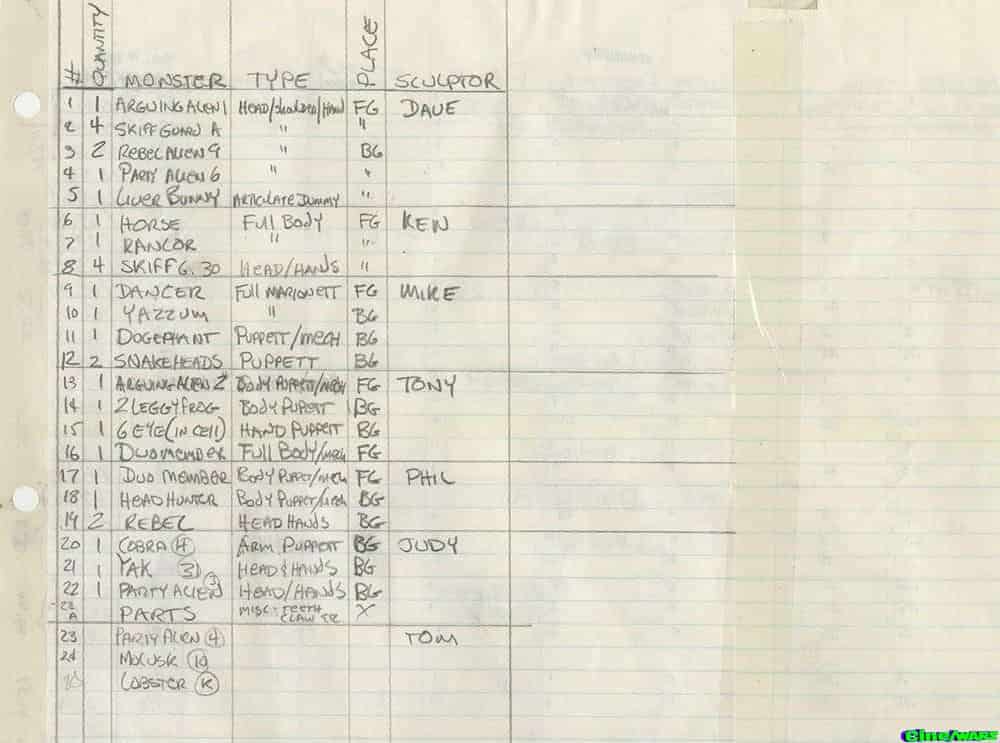 # QUANTITY MONSTER TYPE PLACE SCULPTOR
1 1 ARGUING ALIEN 1 HEAD/Shoulders/Hand FG DAVE
2 4 SKIFF GUARD A " "
3 2 REBEL ALIEN 9 " BG
4 1 PARTY ALIEN 6 " "
5 1 LIVER BUNNY ARTICULATE DUMMY "
6 1 HORSE Full Body FG KEN
7 1 RANCOR " "
8 4 SKIFF G. 30 HEAD/HANDS "
9 1 DANCER Full MARIONETT FG MIKE
10 1 YAZZUM " BG
11 1 DOGEPHANT PUPPETT/MECH BG
12 2 SNAKEHEADS PUPPETT BG
13 1 ARGUING ALIEN 2 BODY PUPPETT/MECH FG TONY
14 1 2 LEGGY FROG BODY PUPPETT BG
15 1 6 EYE (IN CELL) HAND PUPPETT BG
16 1 DUO MEMBER Full BODY/MECH FG
17 1 DUO MEMBER BODY PUPPET/MECH FG PHIL
18 1 HEAD HUNTER BODY PUPPET/MECH BG
19 2 REBEL HEAD HANDS BG
20 1 COBRA 4 ARM PUPPETT BG JUDY
21 1 YAK 31 HEAD & HANDS BG
22 1 PARTY ALIEN 3 HEAD/HANDS BG
22 A PARTS MISC: TEETH CLAW TR X
23 PARTY ALIEN 4 TOM
24 MOLUSK 10
LOBSTER K
Cine/WARS